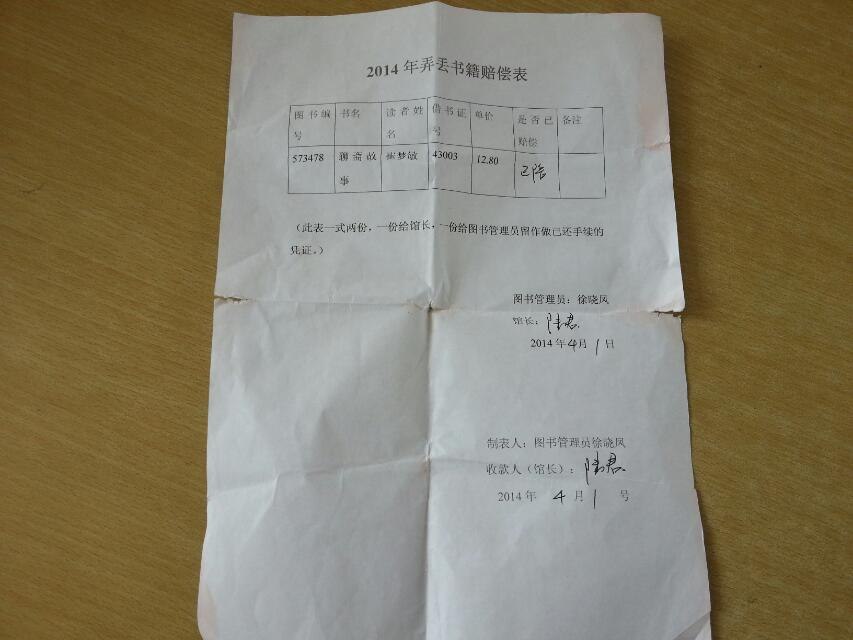 2014 年弄丢书籍赔偿表
图书编号 书名 读者姓名 借书证号 单价 是否已赔偿 备注
573478 聊斋故事 崔梦敏 43003 12.80 已陪
（此表一式两份，一份给馆长，一份给图书管理员留作做已还手续的
凭证。）
图书管理员：徐晓凤
馆长：
2014 年 4 月 1 日
制表人：图书管理员徐晓凤
收款人（馆长）：
2014 年 4 月 1 号